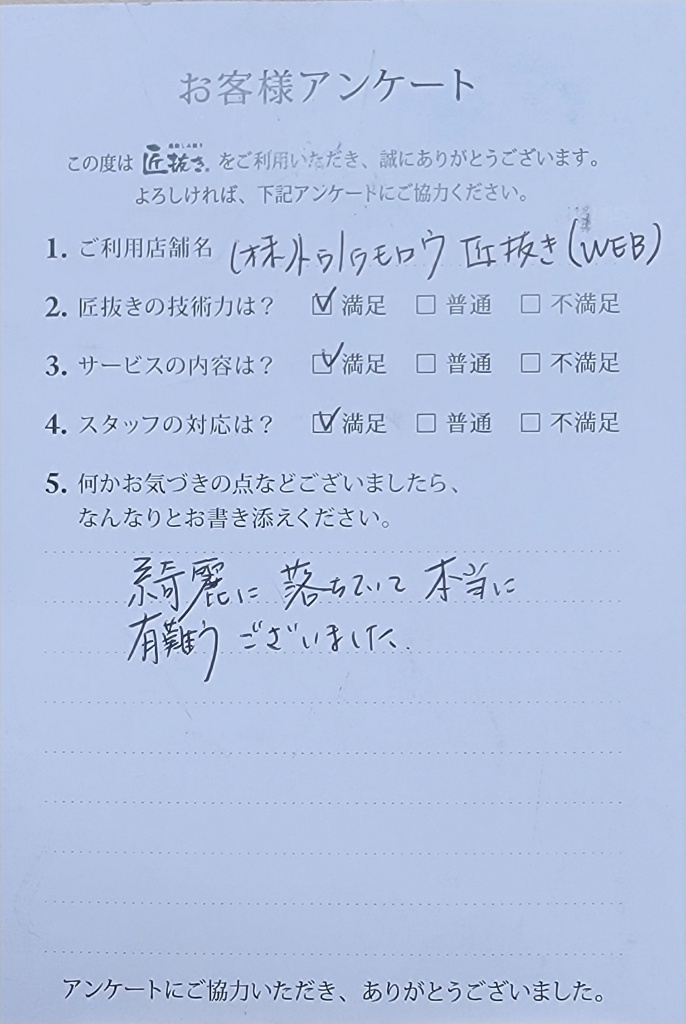 お客様アンケート
この度は 匠抜き をご利用いただき、誠にありがとうございます。
よろしければ、下記アンケートにご協力ください。
1. ご利用店舗名 (株)トゥトゥモロウ 匠抜き(WEB)
2. 匠抜きの技術力は? ☑ 満足 □ 普通 □ 不満足
3. サービスの内容は? ☑ 満足 □ 普通 □ 不満足
4. スタッフの対応は? ☑ 満足 □ 普通 □ 不満足
5. 何かお気づきの点などございましたら、
なんなりとお書き添えください。
綺麗に 落ちていて 本当に
有難う ございました.
アンケートにご協力いただき、ありがとうございました。